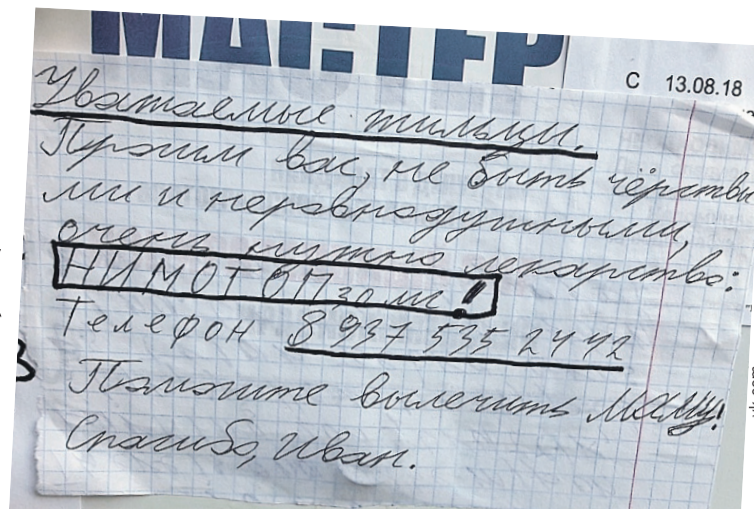 МАСТЕР
С 13.08.18
Уважаемые жильцы.
Просим вас, не быть чёрствы
ми и неравнодушными,
очень нужно лекарство:
НИМОТОП 30 мг!
Телефон 8 937 535 24 42
Помогите вылечить маму!
Спасибо, Иван.